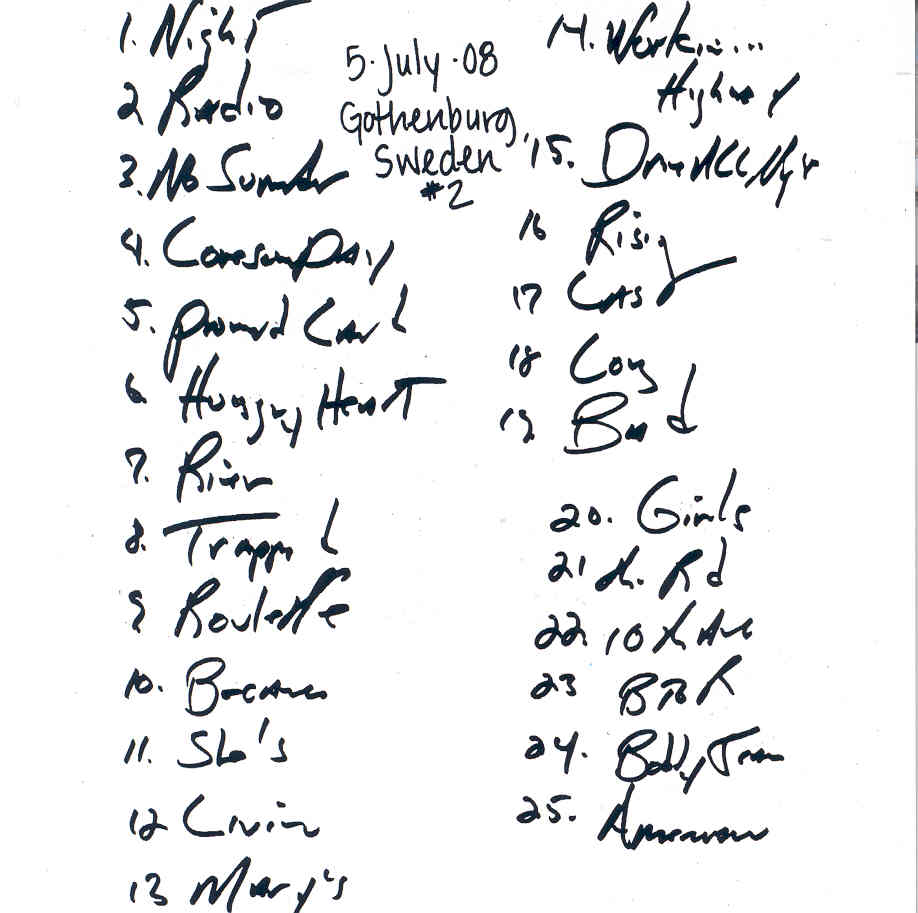 1. Night
2 Radio
3. No Surrender
4. Lonesome Day
5. promised Land
6 Hungry Heart
7. River
8. Trapped
9 Roulette
10. Because
11. She's
12 Livin
13 Mary's
5·July·08
Gothenburg,
Sweden
#2
14. Workin....
Highway
15. Drive All Night
16 Rising
17 Last
18 Long
19. Bad
20. Girls
21 th. Rd
22. 10th Ave
23 BTR
24. Bobby Jean
25. American